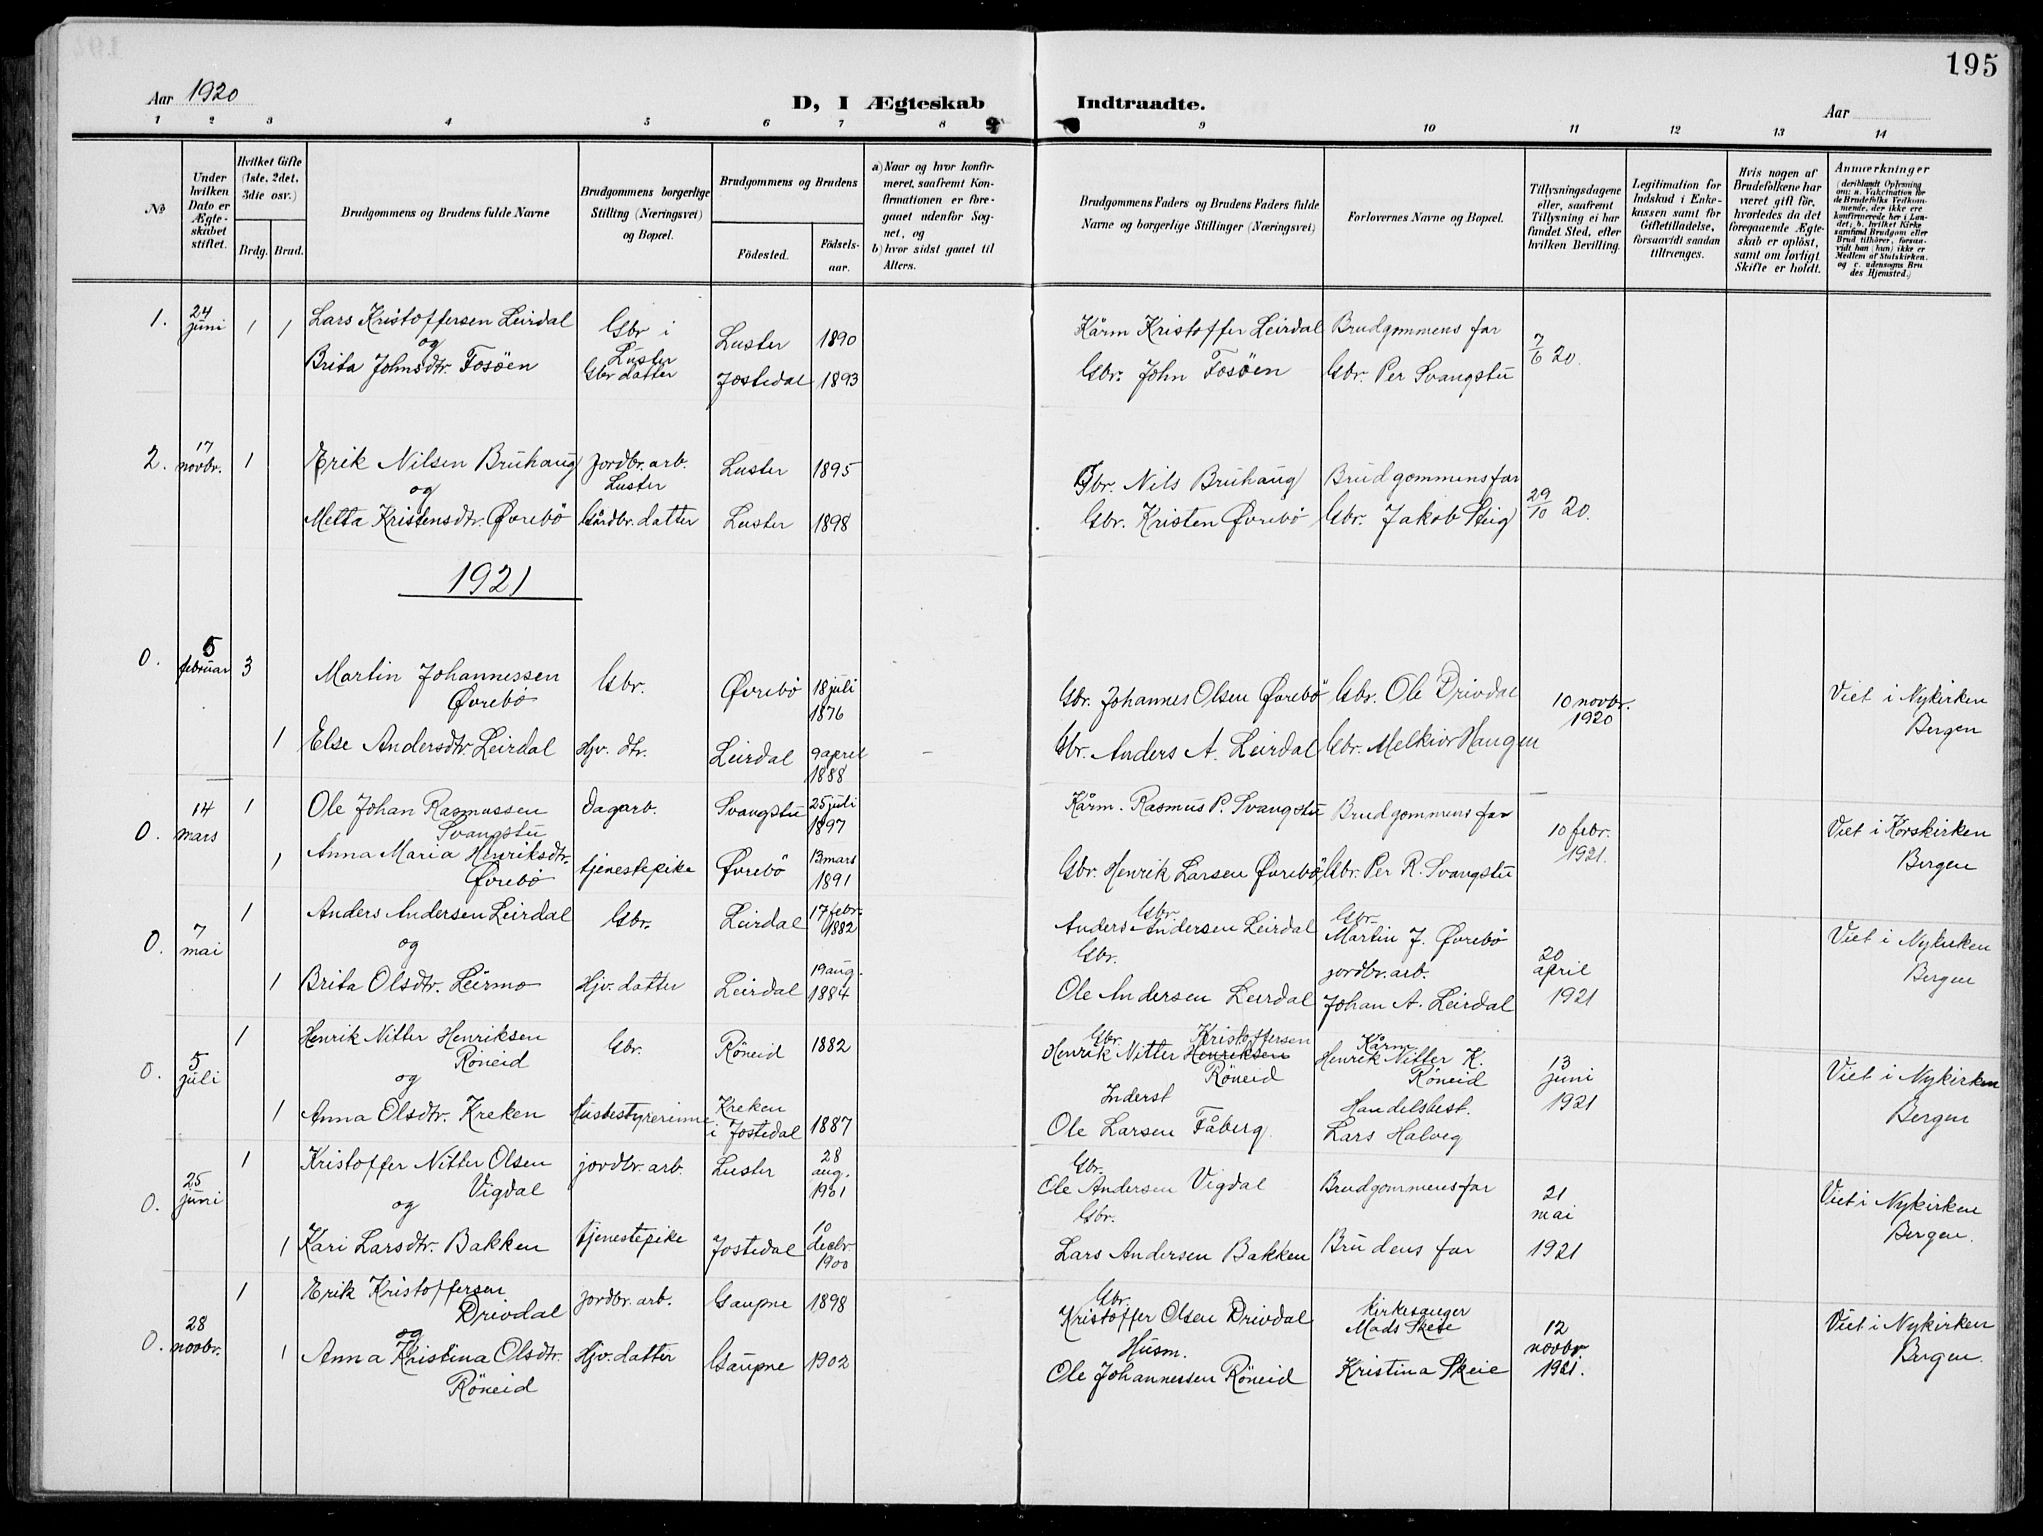 195
Aar 1920
D, I Ægteskab Indtraadte.
Aar
1 2 3 4 5 6 7 8 9 10 11 12 13 14
№
Under hvilken Dato er Ægteskabet stiftet.
Hvilket Gifte (1ste, 2det, 3die osv.)
Brdg. Brud.
Brudgommens og Brudens fulde Navne
Brudgommens borgerlige Stilling (Næringsvei) og Bopæl.
Brudgommens og Brudens
Födested.
Födselsaar.
a) Naar og hvor konfirmeret, saafremt Konfirmationen er foregaaet udenfor Sognet, og
b) hvor sidst gaaet til Alters.
Brudgommens Faders og Brudens Faders fulde Navne og borgerlige Stillinger (Næringsvei)
Forlovernes Navne og Bopæl.
Tillysningsdagene eller, saafremt Tillysning ei har fundet Sted, efter hvilken Bevilling.
Legitimation for Indskud i Enkekassen samt for Giftetilladelse, forsaavidt saadan tiltrænges.
Hvis nogen af Brudefolkene har været gift för, hvorledes da det foregaaende Ægteskab er oplöst, samt om lovligt Skifte er holdt.
Anmærkninger
(deriblandt Oplysning om: a. Vakcination for de Brudefolks Vedkommende, der ikke ere konfirmerede her i Landet; b. hvilket Kirkesamfund Brudgom eller Brud tilhörer, forsaavidt han (hun) ikke er Medlem af Statskirken. og c. udensogns Brudes Hjemsted.)
1. 24 juni 1 1 Lars Kristoffersen Leirdal Gbr i Luster Luster 1890 Kårm Kristoffer Leirdal Brudgommens far 7/6 20.
og
Brita Johnsdtr. Fosöen Gbr datter Jostedal 1893 Gbr. John Fosöen Gbr. Per Svangstu
2. 17 novbr. 1 Erik Nilsen Bruhaug jordbr. arb. Luster Luster 1895 Gbr. Nils Bruhaug Brudgommens far 29/10 20.
og
Metta Kristensdtr. Øvrebö Gårdbr. datter Luster 1898 Gbr. Kristen Øvrebö Gbr. Jakob Steig
1921
0. 5 februar 3 Martin Johannessen Øvrebö Gbr. Øvrebö 18 juli 1876 Gbr. Johannes Olsen Øvrebö Gbr. Ole Drivdal 10 novbr. 1920 Viet i Nykirken Bergen
1 Else Andersdtr. Leirdal Hjv. dtr. Leirdal 9 april 1888 Gbr. Anders A. Leirdal Gbr. Melkior Haugen
0. 14 mars 1 Ole Johan Rasmussen Svangstu Dagarb. Svangstu 25 juli 1897 Kårm. Rasmus P. Svangstu Brudgommens far 10 febr. 1921. Viet i Korskirken Bergen
1 Anna Maria Henriksdtr. Øvrebö tjenestepike Øvrebö 13 mars 1891 Gbr. Henrik Larsen Øvrebö Gbr. Per R. Svangstu
0. 7 mai 1 Anders Andersen Leirdal Gbr. Leirdal 17 febr. 1882 Gbr. Anders Andersen Leirdal Gbr. Martin J. Øvrebö 20 april 1921 Viet i Nykirken Bergen
og
1 Brita Olsdtr. Leirmo Hjv. datter Leirdal 19 aug. 1884 Gbr. Ole Andersen Leirdal jordbr. arb. Johan A. Leirdal
0. 5 juli 1 Henrik Nitter Henriksen Röneid Gbr. Röneid 1882 Gbr. Henrik Nitter Henriksen Kristoffersen Röneid Kårm Henrik Nitter K. Röneid 13 juni 1921 Viet i Nykirken Bergen
og
1 Anna Olsdtr. Kreken Husbestyrerinne Kreken i Jostedal 1887 Inderst Ole Larsen Fåberg. Handelsbest. Lars Halveg
0. 25 juni 1 Kristoffer Nitter Olsen Vigdal jordbr. arb. Luster 28 aug. 1901 Gbr. Ole Andersen Vigdal Brudgommens far 21 mai 1921 Viet i Nykirken Bergen.
og
1 Kari Larsdtr. Bakken tjenestepike Jostedal 10 decbr 1900 Gbr. Lars Andersen Bakken Brudens far
0. 28 novbr. 1 Erik Kristoffersen Drivdal jordbr. arb. Gaupne 1898 Gbr. Kristoffer Olsen Drivdal kirkesanger Mads Skeie 12 novbr 1921. Viet i Nykirken Bergen.
og
1 Anna Kristina Olsdtr. Röneid Hjv. datter Gaupne 1902 Husm. Ole Johannessen Röneid Kristina Skeie